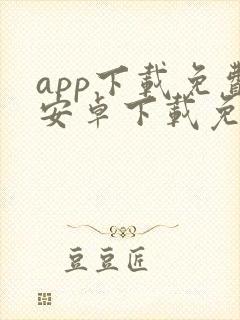 app下载免费
安卓下载免
豆豆匠